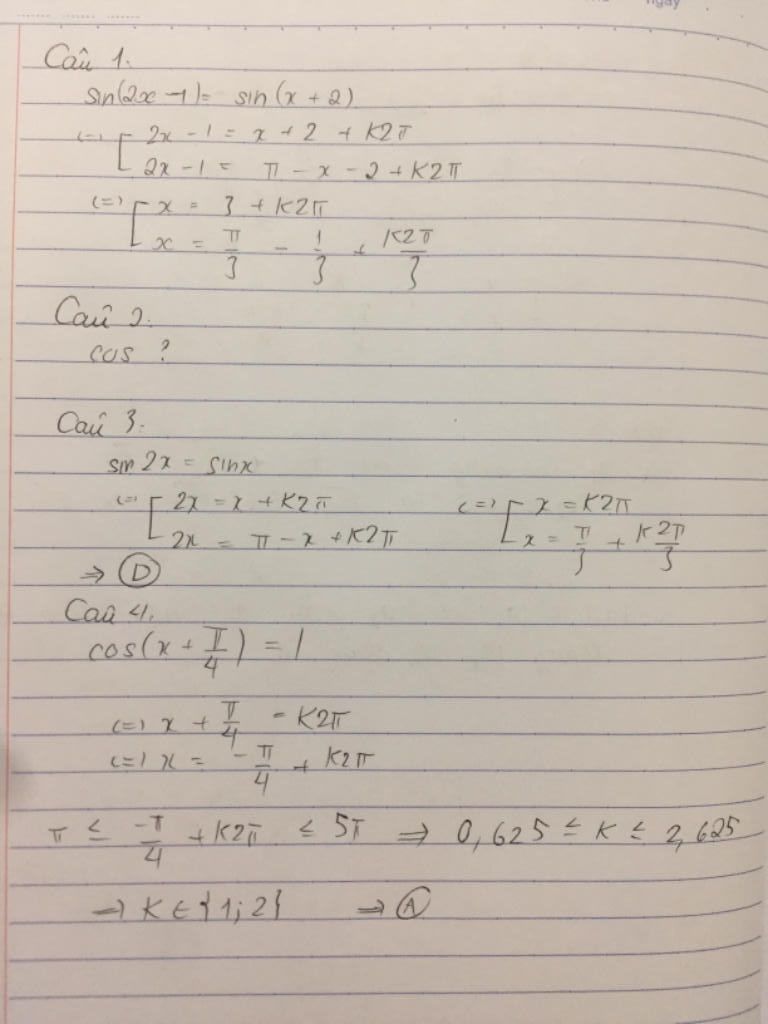 ngày
Câu 1:
sin(2x - 1) = sin(x + 2)
(=) [ 2x - 1 = x + 2 + K2π
2x - 1 = π - x - 2 + K2π
(=) [ x = 3 + K2π
x = π/3 - 1/3 + K2π/3
Câu 2:
cos ?
Câu 3:
sin 2x = sinx
(=) [ 2x = x + K2π (=) [ x = K2π
2x = π - x + K2π x = π/3 + K2π/3
⇒ D
Câu 4:
cos(x + π/4) = 1
(=) x + π/4 = K2π
(=) x = -π/4 + K2π
π ≤ -π/4 + K2π ≤ 5π ⇒ 0,625 ≤ K ≤ 2,625
→ K ∈ {1; 2} ⇒ A